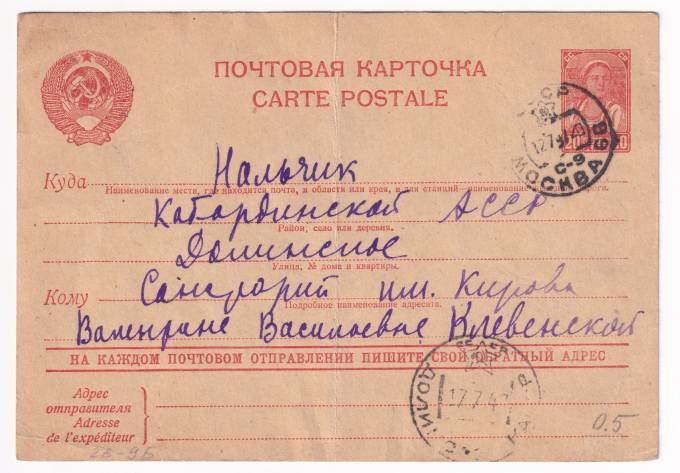 ПОЧТОВАЯ КАРТОЧКА
CARTE POSTALE
Куда Нальчик
Наименование места, где находится почта, и области или края, а для станций - наименование
Кабардинской АССР
Район, село или деревня.
Долинское
Улица, № дома и квартиры.
Кому Санаторий им. Кирова
Подробное наименование адресата.
Валентине Васильевне Клевенской
НА КАЖДОМ ПОЧТОВОМ ОТПРАВЛЕНИИ ПИШИТЕ СВОЙ ОБРАТНЫЙ АДРЕС
Адрес
отправителя
Adresse
de l'expéditeur
МОСКВА 69
С-9
17.7.4
0.5
28-9Б